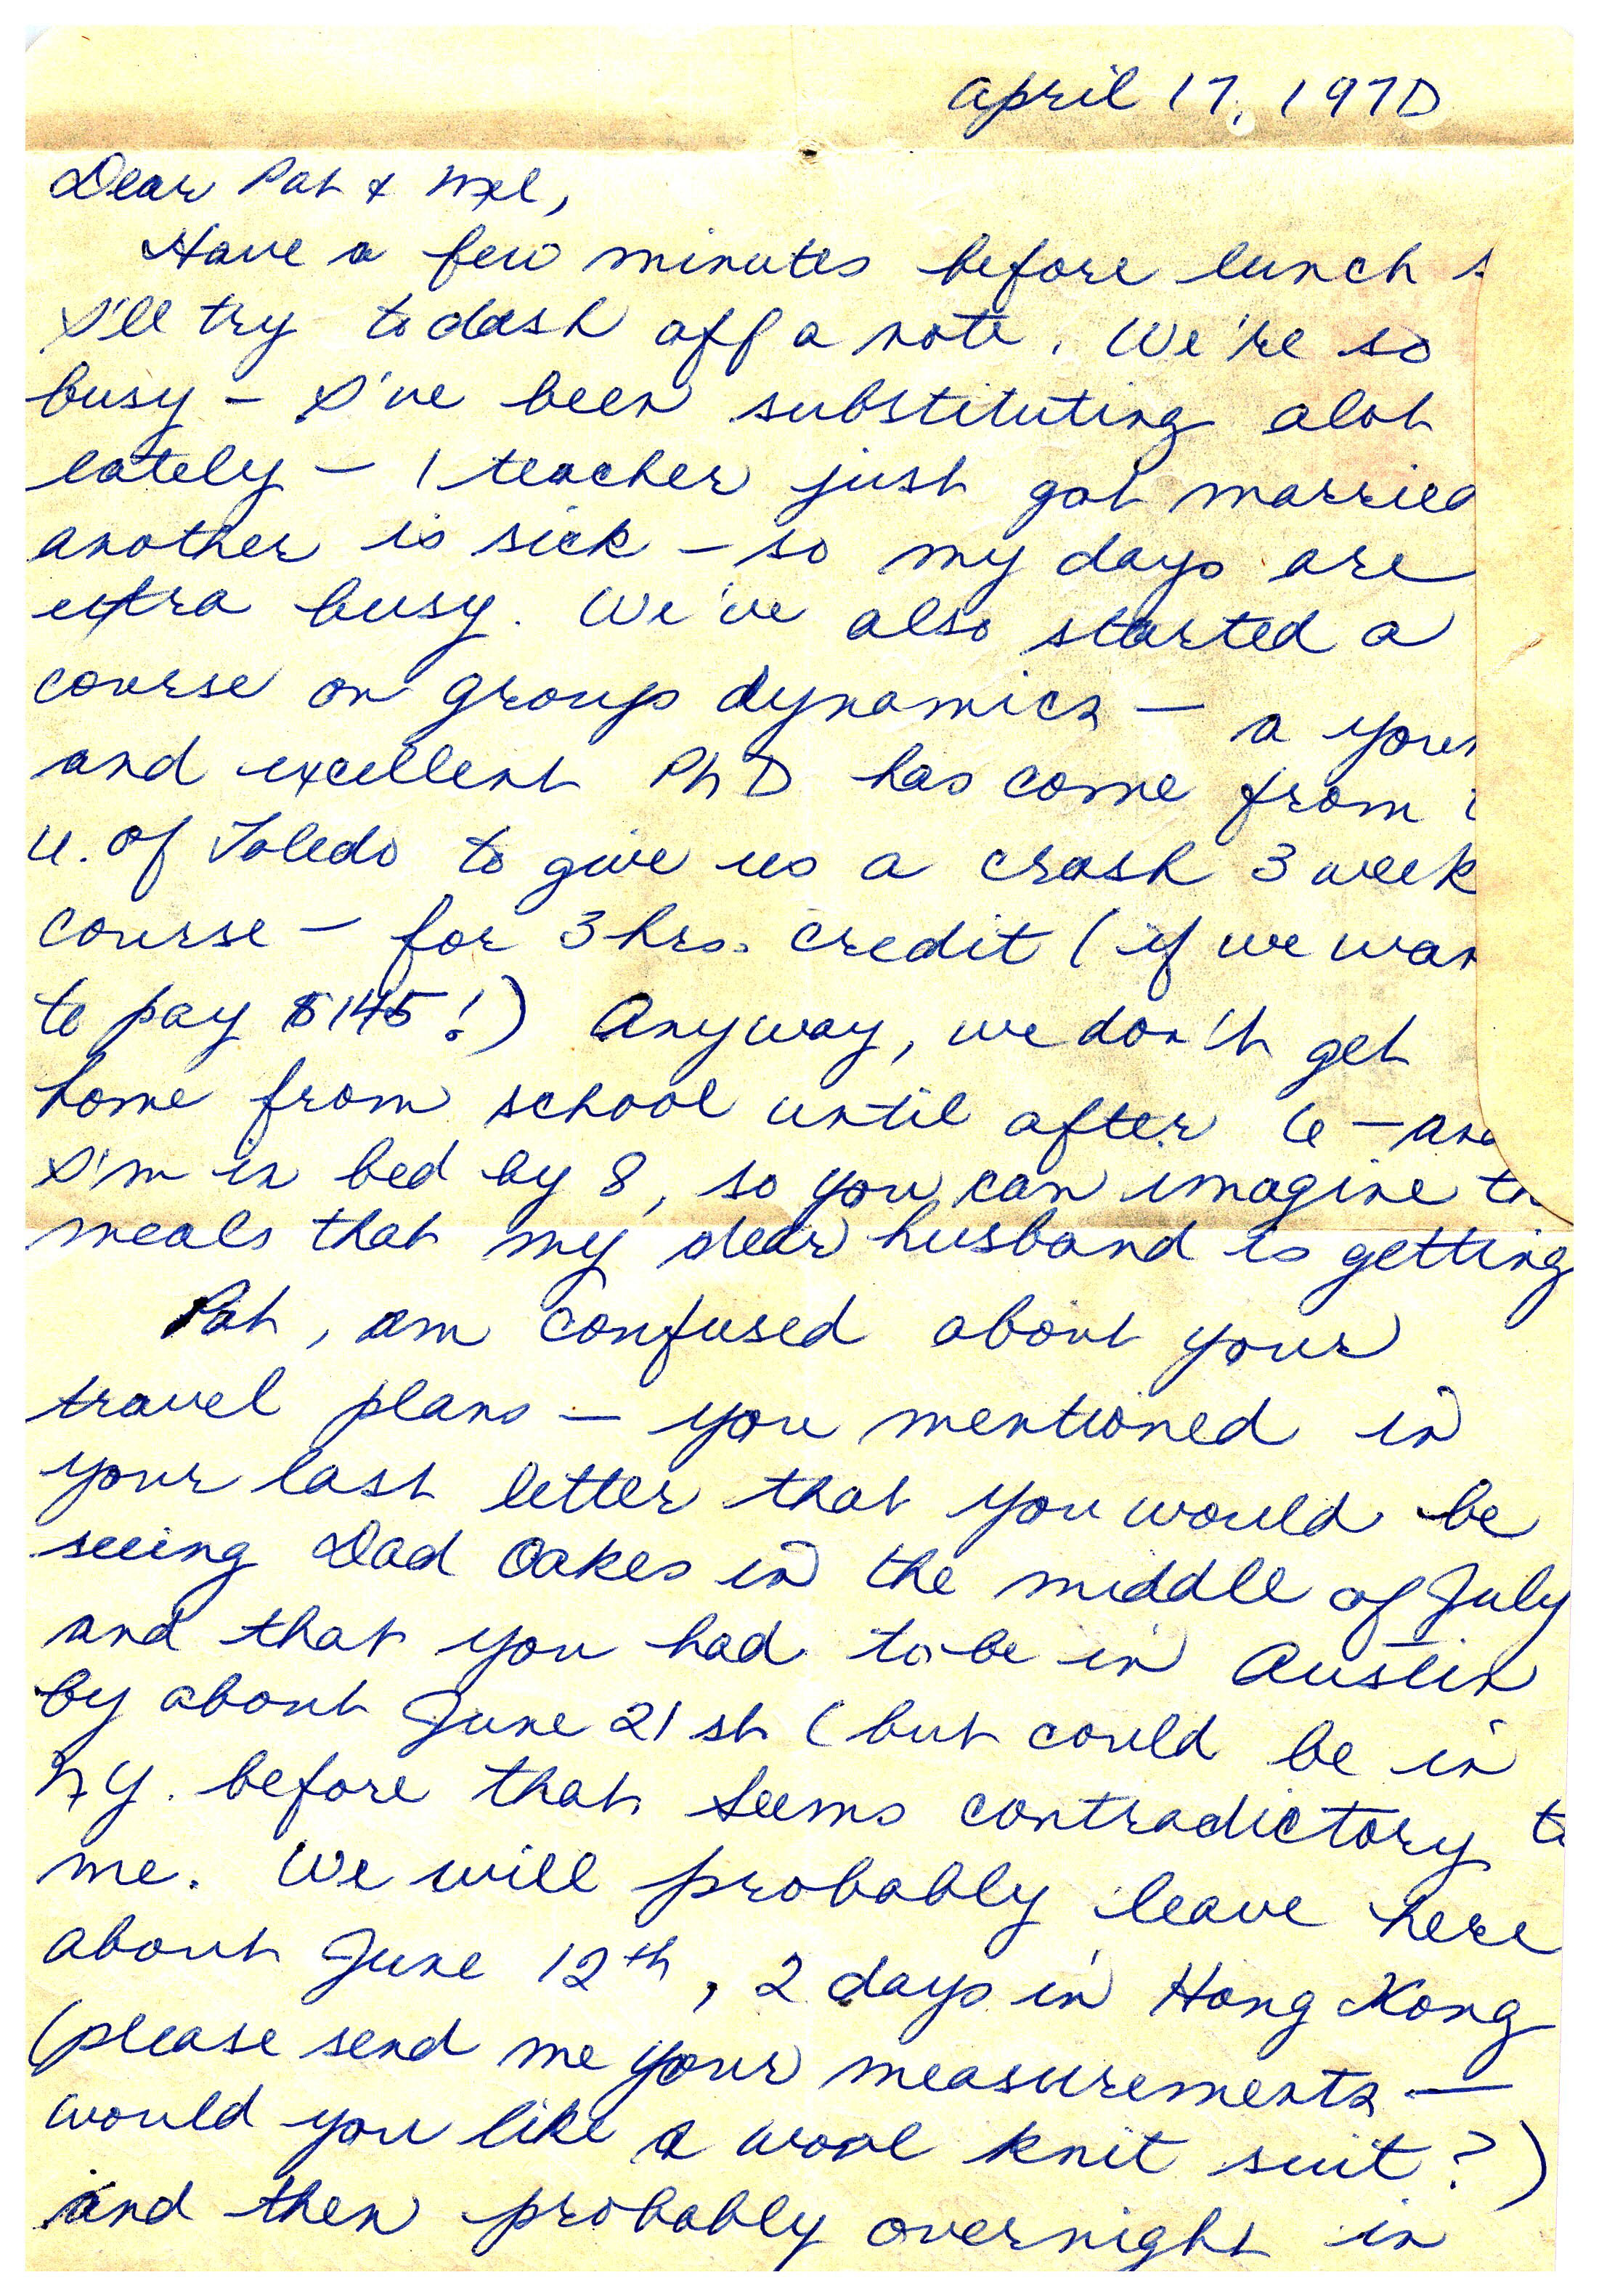 April 17, 1970
Dear Pat & Mel,
Have a few minutes before lunch s
I'll try to dash off a note. We're so
busy – I've been substituting alot
lately – 1 teacher just got married
another is sick – so my days are
extra busy. We've also started a
course on group dynamics – a youn
and excellent PhD has come from
U. of Toledo to give us a crash 3 week
course – for 3 hrs. credit (if we wan
to pay $145!) Anyway, we don't get
home from school until after 6 – and
I'm in bed by 8, so you can imagine th
meals that my dear husband is getting
Pat, am confused about your
travel plans – you mentioned in
your last letter that you would be
seeing Dad Oakes in the middle of July
and that you had to be in Austin
by about June 21st (but could be in
NY. before that seems contradictory to
me. We will probably leave here
about June 12th, 2 days in Hong Kong
(please send me your measurements –
would you like a wool knit suit?)
and then probably overnight in